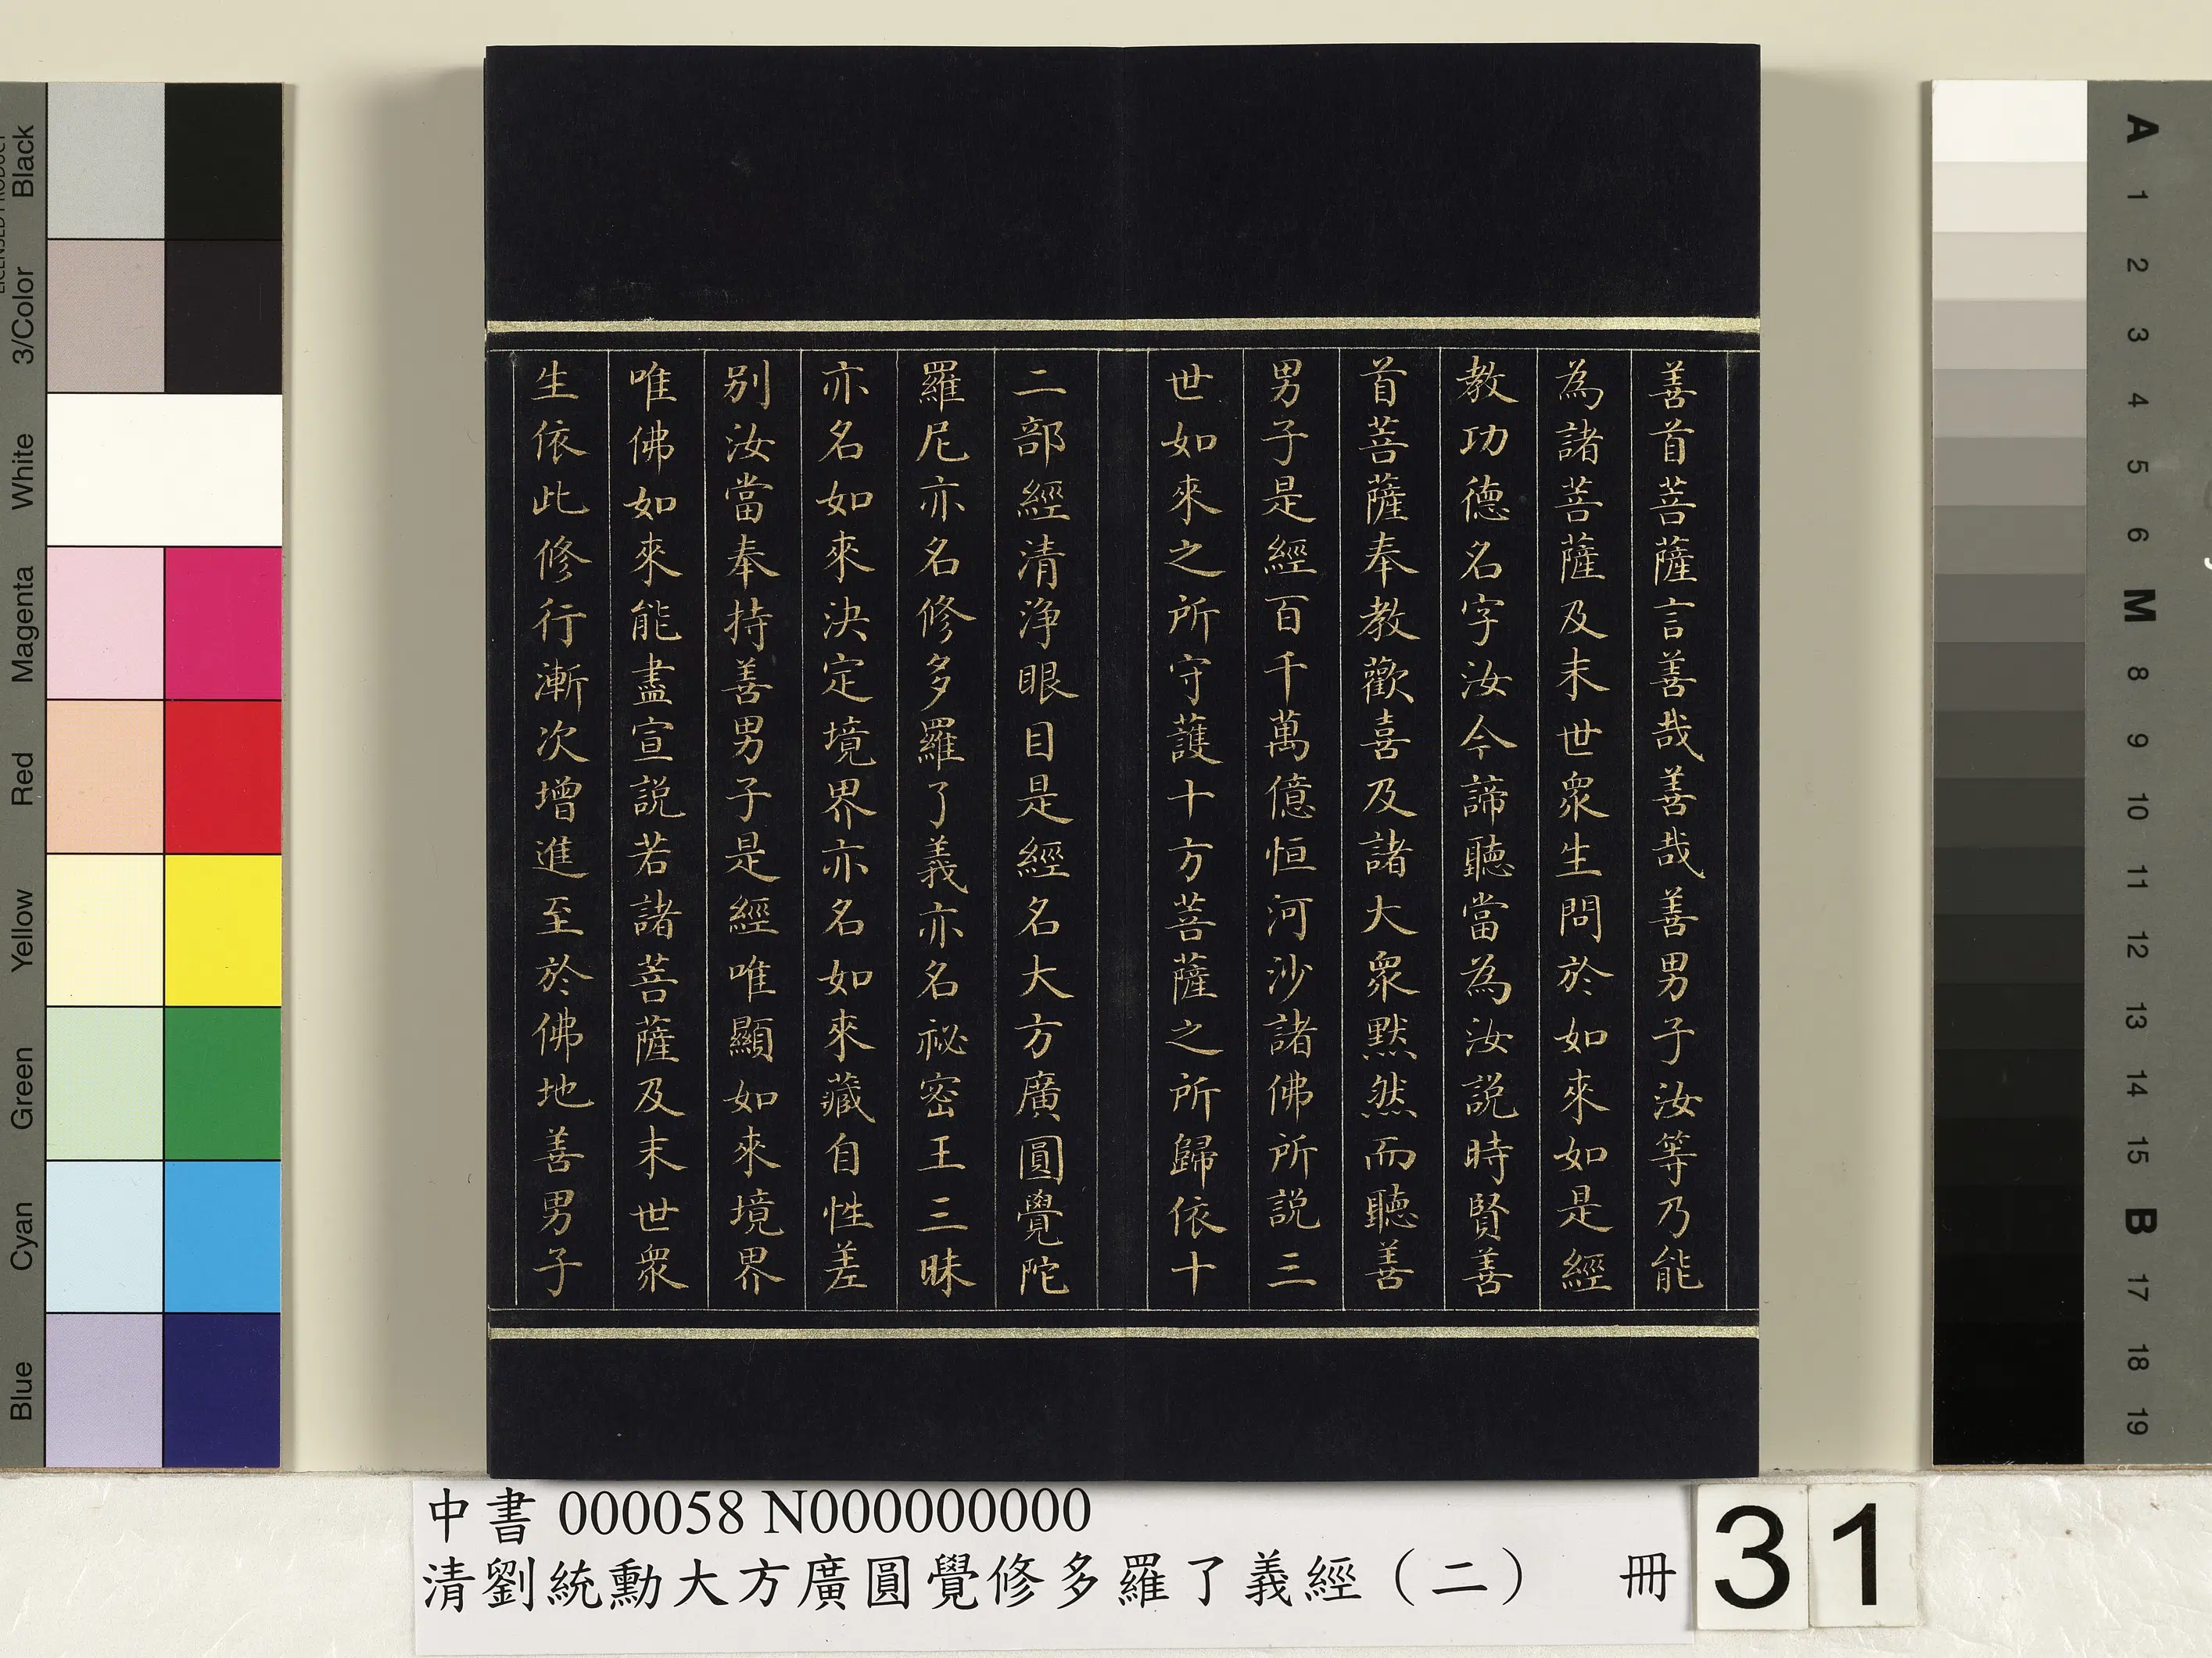 善首菩薩言善哉善哉善男子汝等乃能
為諸菩薩及末世眾生問於如來如是經
教功德名字汝今諦聽當為汝説時賢善
首菩薩奉教歡喜及諸大眾默然而聽善
男子是經百千萬億恒河沙諸佛所説三
世如來之所守護十方菩薩之所歸依十
二部經清淨眼目是經名大方廣圓覺陀
羅尼亦名修多羅了義亦名祕密王三昧
亦名如來決定境界亦名如來藏自性差
別汝當奉持善男子是經唯顯如來境界
唯佛如來能盡宣説若諸菩薩及末世眾
生依此修行漸次增進至於佛地善男子
中書 000058 N000000000
清劉統勳大方廣圓覺修多羅了義經（二） 冊
31
Black
3/Color
White
Magenta
Red
Yellow
Green
Cyan
Blue
A
1
2
3
4
5
6
M
8
9
10
11
12
13
14
15
B
17
18
19